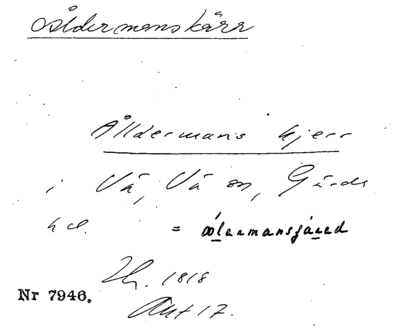 Åldermanskärr
Ålldermans kjerr
i Vä, Vä sn, Gärds
hd. =
Lh. 1818
Akt 17.
Nr 7946.